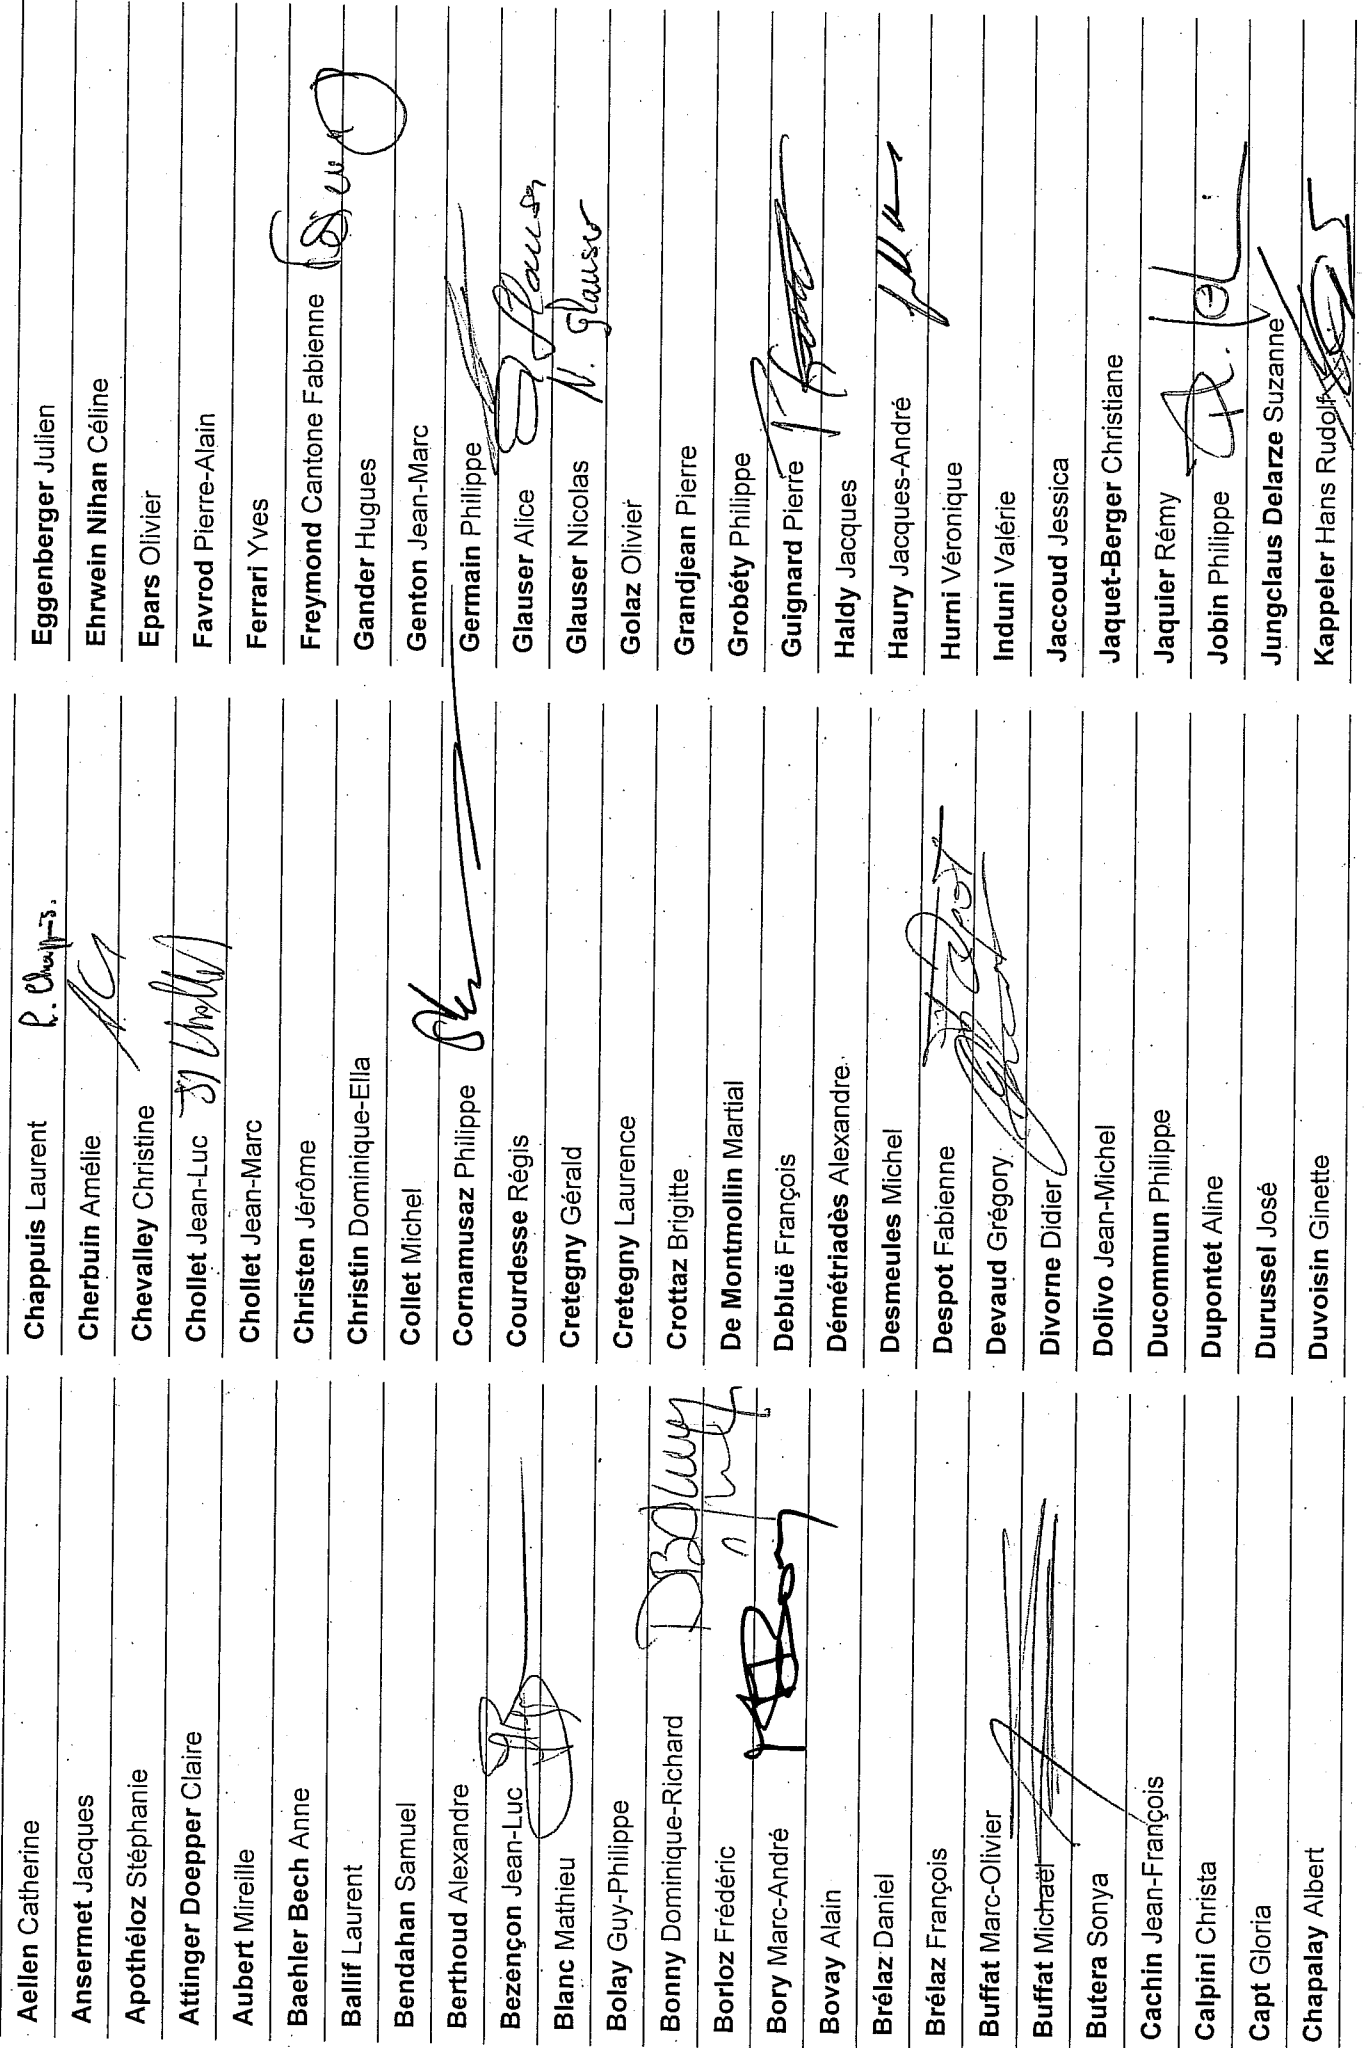 Aellen Catherine
Ansermet Jacques
Apothéloz Stéphanie
Attinger Doepper Claire
Aubert Mireille
Baehler Bech Anne
Ballif Laurent
Bendahan Samuel
Berthoud Alexandre
Bezençon Jean-Luc
Blanc Mathieu
Bolay Guy-Philippe
Bonny Dominique-Richard
Borloz Frédéric
Bory Marc-André
Bovay Alain
Brélaz Daniel
Brélaz François
Buffat Marc-Olivier
Buffat Michaël
Butera Sonya
Cachin Jean-François
Calpini Christa
Capt Gloria
Chapalay Albert
Chappuis Laurent L. Chappuis.
Cherbuin Amélie
Chevalley Christine
Chollet Jean-Luc
Chollet Jean-Marc
Christen Jérôme
Christin Dominique-Ella
Collet Michel
Cornamusaz Philippe
Courdesse Régis
Cretegny Gérald
Cretegny Laurence
Crottaz Brigitte
De Montmollin Martial
Debluë François
Démétriadès Alexandre
Desmeules Michel
Despot Fabienne
Devaud Grégory
Divorne Didier
Dolivo Jean-Michel
Ducommun Philippe
Dupontet Aline
Durussel José
Duvoisin Ginette
Eggenberger Julien
Ehrwein Nihan Céline
Epars Olivier
Favrod Pierre-Alain
Ferrari Yves
Freymond Cantone Fabienne
Gander Hugues
Genton Jean-Marc
Germain Philippe
Glauser Alice
Glauser Nicolas N. Glauser
Golaz Olivier
Grandjean Pierre
Grobéty Philippe
Guignard Pierre
Haldy Jacques
Haury Jacques-André
Hurni Véronique
Induni Valérie
Jaccoud Jessica
Jaquet-Berger Christiane
Jaquier Rémy
Jobin Philippe
Jungclaus Delarze Suzanne
Kappeler Hans Rudolf